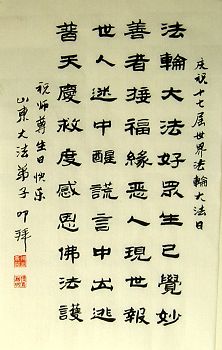 庆祝十七届世界法輪大法日
法輪大法好眾生已覺妙
善者接福緣恶人現世報
世人迷中醒謊言中出逃
普天慶救度感恩佛法護
祝師尊生日快乐
山東大法弟子叩拜